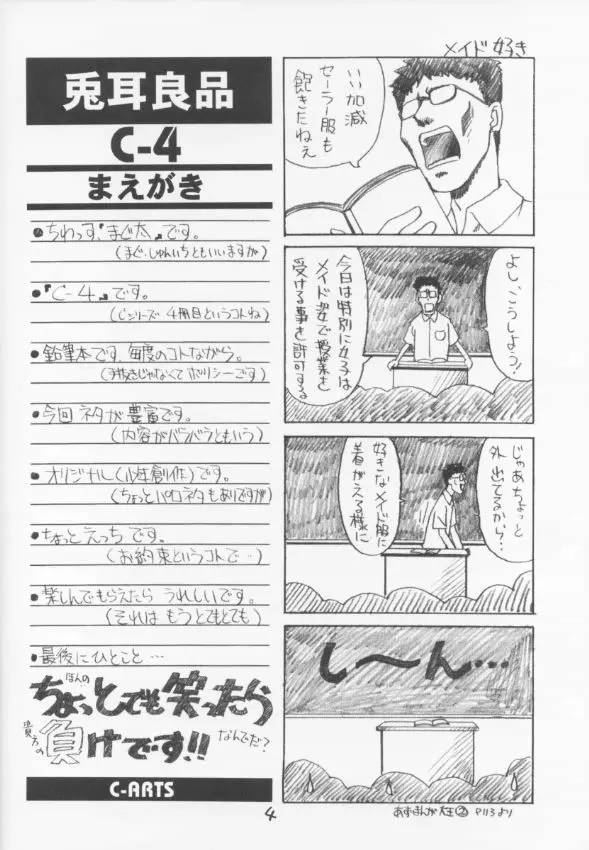 兎耳良品
C-4
まえがき
●ちわっす、『まぐ太』です。
(まぐ・じゅんいちともいいますが)
●『C-4』です。
(Cシリーズ 4冊目というコトね)
●鉛筆本です、毎度のコトながら。
(手抜きじゃなくてポリシーです)
●今回 ネタが豊富です。
(内容がバラバラともいう)
●オリジナル(少年創作)です。
(ちょっとパロネタもありですが)
●ちょっと えっち です。
(お約束というコトで…)
●楽しんでもらえたら うれしいです。
(それは もう とてもとても)
●最後にひとこと…
ほんの
ちょっとでも笑ったら
貴方の負けです!!
なんでだ?
C-ARTS
メイド好き
いい加減
セーラー服も
飽きたねえ
よし、こうしよう!
今日は特別に女子は
メイド姿で授業を
受ける事を許可する
じゃあちょっと
外出てるから…
好きなメイド服に
着がえる様に
し〜ん…
あずまんが大王② P113より
4